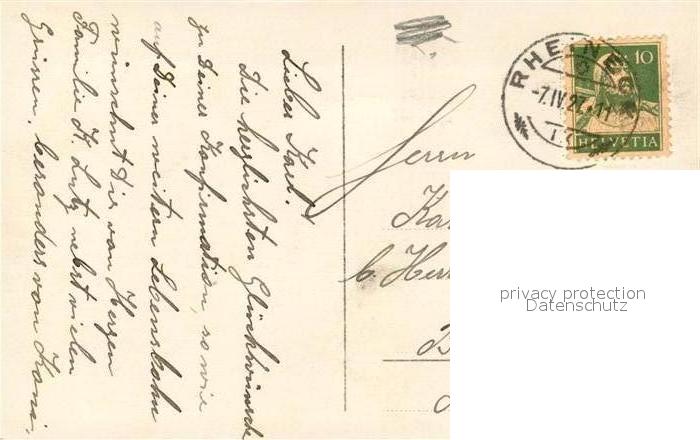 Lieber Karl.
Die herzlichsten Glückwünsche
zu Deiner Konfirmation, sowie
auf Deinen weitern Lebensbahn
wünscht Dir von Herzen
Familie K. Lutz nebst vielen
Grüssen, besonders von Hans.
Herrn
Ka
b. Her
RHEINECK
-7.IV.27.-11
10
HELVETIA
privacy protection
Datenschutz